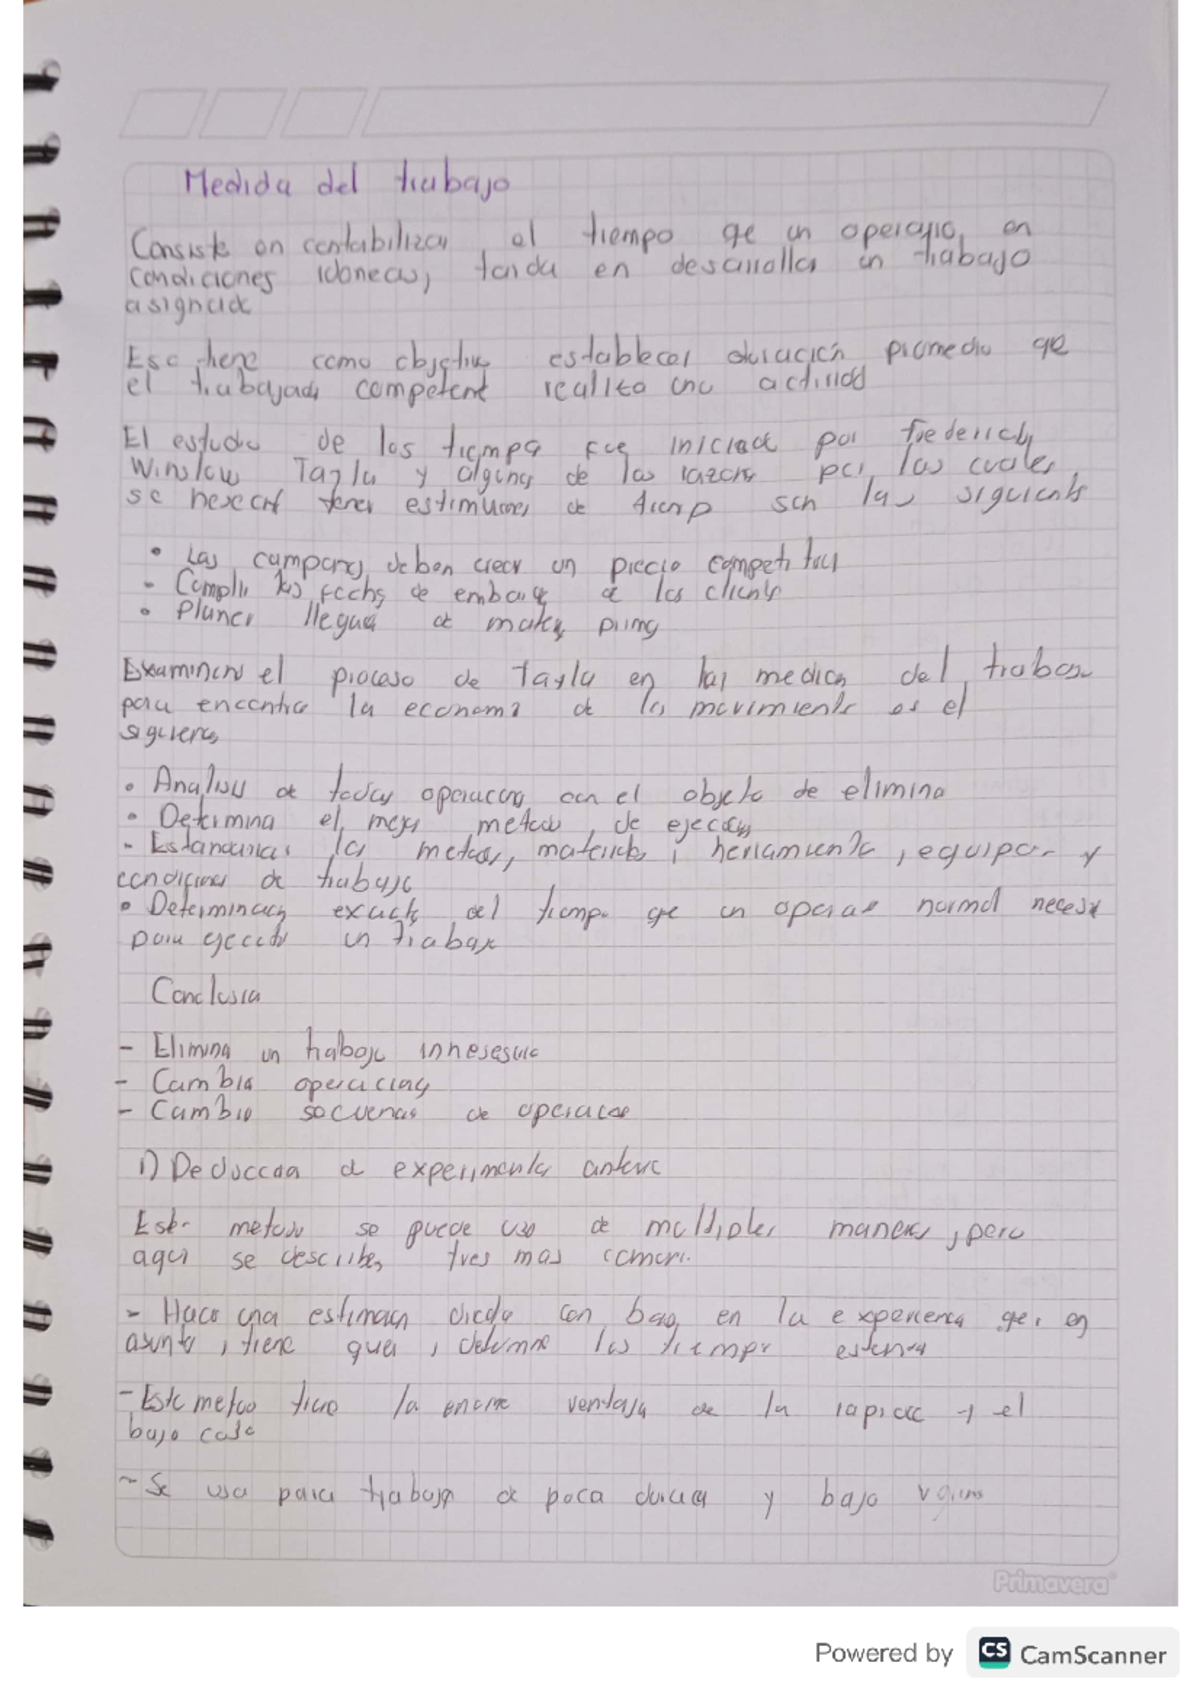 Medida del trabajo
Consiste en contabilizar el tiempo qe un operario, en
condiciones idoneas, tarda en desarrollar un trabajo
asignado
Eso tiene como objetivo establecer duración promedio qe
el trabajador competent realito una actividad
El estudio de los tiempo fue iniciado por Frederich
Winslow Taylor y algunas de las razones por las cuales
se nesecit tener estimaciones de tiemp son las siguients
• Las company deben crear un precio competitivo
- Complir las fechs de embarqe a los clients
• Planer llegad de mater prima
Examinens el proceso de Taylor en las medicas del trabajo
para encontrar la economia de los movimients es el
siguiens
• Analisis de todas operaciones con el objeto de elimina
• Determina el mejor metodo, de ejecución
- Estandarizar los metodos, materials, herramienta, equipos y
condiciones de trabajo
• Determinacin exacta del tiempo qe un operar normal necesi
para ejecutr un trabajo
Conclusia
- Elimina un trabajo innesesario
- Cambia operaciones
- Cambio secuencias de operacion
1) Deduccion d experiments anterior
Este metodo se puede usa de multiples maneras, pero
aqui se describes tres mas comun.
- Hace una estimacin directa con base en la experiencia qe, en
asunto, tiene quei, determine los tiempos
- Este metodo tiene la enorme ventaja de la rapidez y el
bajo costo
- Se usa para trabajo de poca duracion y bajo
Primavera
Powered by CS CamScanner